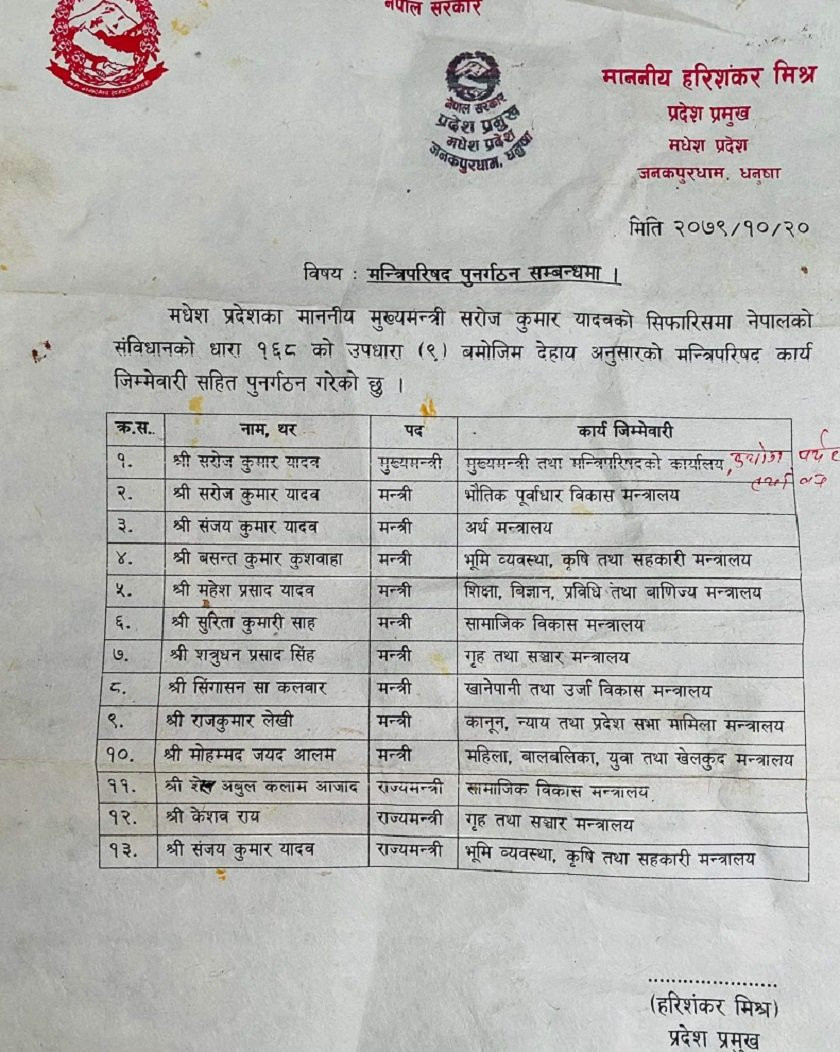 नेपाल सरकार
माननीय हरिशंकर मिश्र
प्रदेश प्रमुख
मधेश प्रदेश
जनकपुरधाम, धनुषा
नेपाल सरकार
प्रदेश प्रमुख
मधेश प्रदेश
जनकपुरधाम, धनुषा
मिति २०७९/१०/२०
विषय : मन्त्रिपरिषद पुनर्गठन सम्बन्धमा ।
मधेश प्रदेशका माननीय मुख्यमन्त्री सरोज कुमार यादवको सिफारिसमा नेपालको
संविधानको धारा १६८ को उपधारा (९) बमोजिम देहाय अनुसारको मन्त्रिपरिषद कार्य
जिम्मेवारी सहित पुनर्गठन गरेको छु ।
क्र.स. नाम, थर पद कार्य जिम्मेवारी
१. श्री सरोज कुमार यादव मुख्यमन्त्री मुख्यमन्त्री तथा मन्त्रिपरिषदको कार्यालय,
२. श्री सरोज कुमार यादव मन्त्री भौतिक पूर्वाधार विकास मन्त्रालय
३. श्री संजय कुमार यादव मन्त्री अर्थ मन्त्रालय
४. श्री बसन्त कुमार कुशवाहा मन्त्री भूमि व्यवस्था, कृषि तथा सहकारी मन्त्रालय
५. श्री महेश प्रसाद यादव मन्त्री शिक्षा, विज्ञान, प्रविधि तथा बाणिज्य मन्त्रालय
६. श्री सुरिता कुमारी साह मन्त्री सामाजिक विकास मन्त्रालय
७. श्री शत्रुधन प्रसाद सिंह मन्त्री गृह तथा सञ्चार मन्त्रालय
८. श्री सिंगासन सा कलवार मन्त्री खानेपानी तथा उर्जा विकास मन्त्रालय
९. श्री राजकुमार लेखी मन्त्री कानून, न्याय तथा प्रदेश सभा मामिला मन्त्रालय
१०. श्री मोहम्मद जयद आलम मन्त्री महिला, बालबलिका, युवा तथा खेलकुद मन्त्रालय
११. श्री अबुल कलाम आजाद राज्यमन्त्री सामाजिक विकास मन्त्रालय
१२. श्री केशव राय राज्यमन्त्री गृह तथा सञ्चार मन्त्रालय
१३. श्री संजय कुमार यादव राज्यमन्त्री भूमि व्यवस्था, कृषि तथा सहकारी मन्त्रालय
(हरिशंकर मिश्र)
प्रदेश प्रमुख